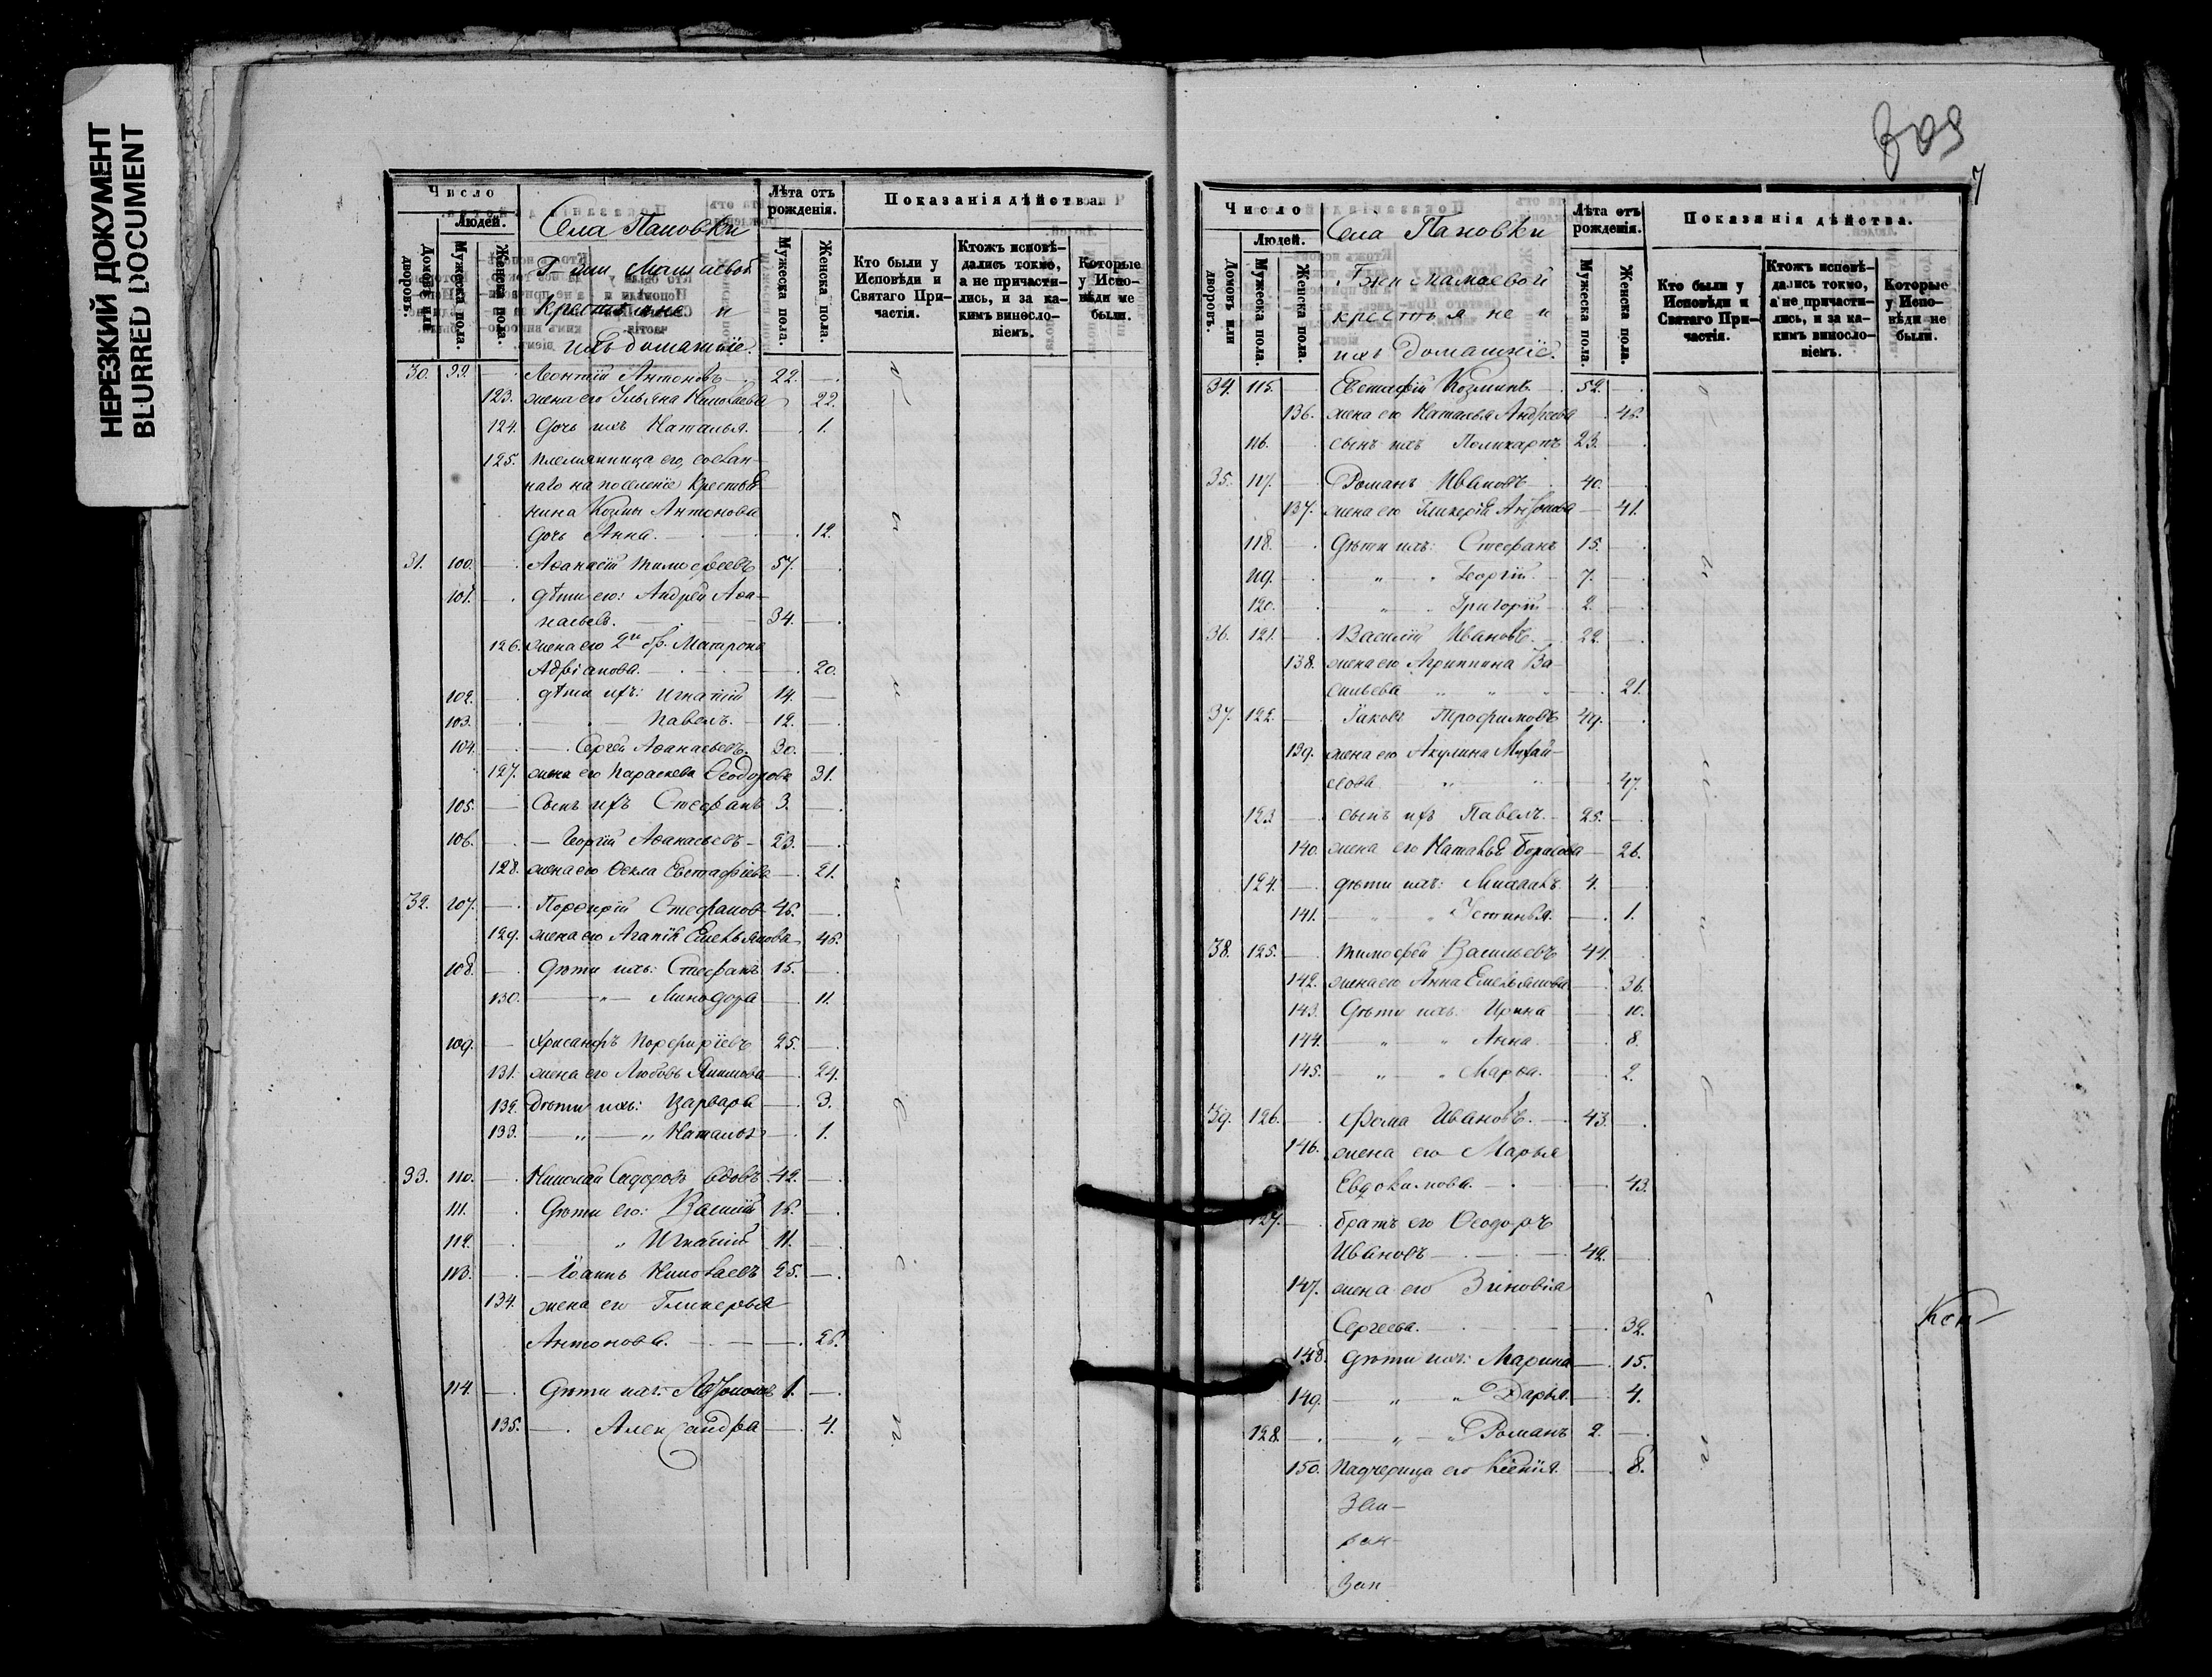 НЕРЕЗКИЙ ДОКУМЕНТ
BLURRED DOCUMENT
Число
Людей.
Домовъ или дворовъ.
Мужеска пола.
Женска пола.
Села Пановки
Г-жи Мамаевой
Крестьяне и
ихъ домашніе.
Лѣта отъ рожденія.
Мужеска пола.
Женска пола.
Показанія дѣйства.
Кто были у Исповѣди и Святаго Причастія.
Ктожъ исповѣдались токмо, а не причастились, и за какимъ винословіемъ.
Которые у Исповѣди не были.
30. 99. Леонтій Антоновъ 22.
123. жена его Ульяна Николаева 22.
124. дочь ихъ Наталья 1.
125. племянница его, сослан-
наго на поселеніе Крестья-
нина Козмы Антонова
дочь Анна. 12.
31. 100. Аѳанасій Тимофеевъ 57.
101. дѣти его: Андрей Аѳа-
насьевъ. 34.
126. жена его 2го бр. Матрона
Адріанова. 20.
102. дѣти ихъ: Игнатій 14.
103. Павелъ. 12.
104. Сергей Аѳанасьевъ. 30.
127. жена его Параскева Ѳеодорова 31.
105. Сынъ ихъ Стефанъ 3.
106. Георгій Аѳанасьевъ 23.
128. жена его Ѳекла Евстафіева 21.
32. 107. Порфирій Стефановъ 46.
129. жена его Агапія Емельянова 46.
108. дѣти ихъ: Стефанъ 15.
130. „ Минодора 11.
109. Хрисанфъ Порфиріевъ 25.
131. жена его Любовь 24.
132. Дѣти ихъ: Варвара 3.
133. „ „ Наталья 1.
33. 110. Николай Сидоровъ вдовъ 42.
111. Дѣти его: Василій 16.
112. „ Игнатій 11.
113. Іоаннъ Николаевъ 25.
134. жена его Гликерья
Антонова. 26.
114. Дѣти ихъ: 1.
135. Александра 4.
309
7
Число
Людей.
Домовъ или дворовъ.
Мужеска пола.
Женска пола.
Села Пановки
Г-жи Мамаевой
крестьяне и
ихъ домашніе.
Лѣта отъ рожденія.
Мужеска пола.
Женска пола.
Показанія дѣйства.
Кто были у Исповѣди и Святаго Причастія.
Ктожъ исповѣдались токмо, а не причастились, и за какимъ винословіемъ.
Которые у Исповѣди не были.
34. 115. Евстафій Козминъ 52.
136. жена его Наталья Андреева 46.
116. сынъ ихъ Поликарпъ 23.
35. 117. Романъ Ивановъ 40.
137. жена его Гликерія 41.
118. Дѣти ихъ: Стефанъ 15.
119. „ „ Георгій 7.
120. „ „ Григорій 2.
36. 121. Василій Ивановъ. 22.
138. жена его Агриппина Ва-
сильева „ „ „ 21.
37. 122. Іаковъ Трофимовъ 49.
139. жена его Акулина Михай-
лова „ „ 47.
123. сынъ ихъ Павелъ. 25.
140. жена его Наталья Борисова 26.
124. дѣти ихъ: Михаилъ 4.
141. „ „ Устинья 1.
38. 125. Тимофей Васильевъ 44.
142. жена его Анна Емельянова 36.
143. Дѣти ихъ: Ирина 10.
144. „ „ Анна 8.
145. „ „ Марѳа. 2.
39. 126. Фома Ивановъ. 43.
146. жена его Марья
Евдокимова. 43.
127. братъ его Ѳеодоръ
Ивановъ 42.
147. жена его Зиновія
Сергеева. 32.
148. дѣти ихъ: Марина 15.
149. „ „ Дарья. 4.
128. „ „ Романъ 2.
150. Падчерица его Ксенія. 8.